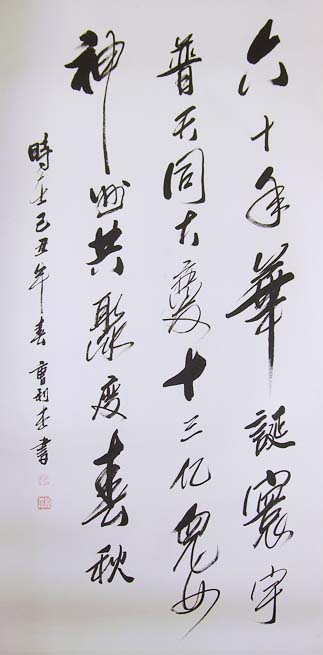 六十年華誕寰宇
普天同大慶十三亿兒女
神州共聚度春秋
時在己丑年春 曹利老書